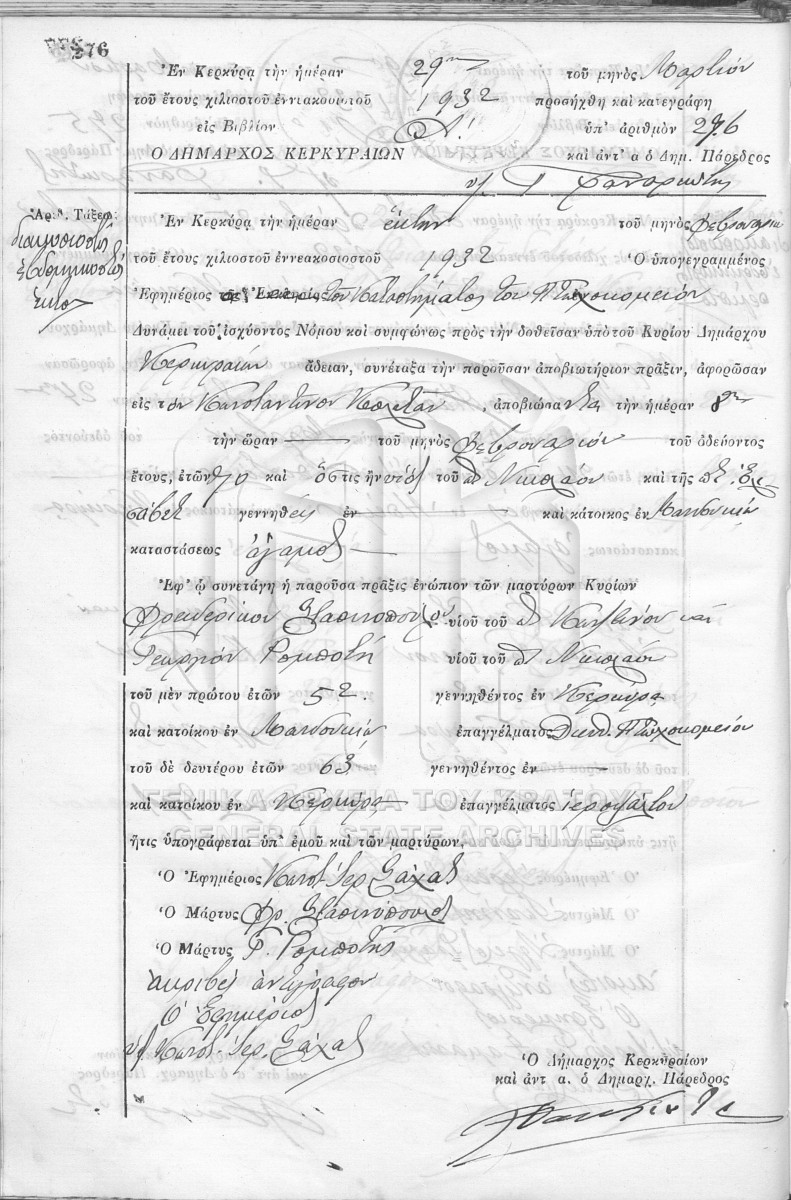 276
Ἐν Κερκύρᾳ τὴν ἡμέραν 29ην τοῦ μηνὸς Μαρτίου
τοῦ ἔτους χιλιοστοῦ ἐννιακουστοῦ 1932 προσήχθη καὶ κατεγράφη
εἰς Βιβλίον Α! ὑπ' ἀριθμὸν 276
Ο ΔΗΜΑΡΧΟΣ ΚΕΡΚΥΡΑΙΩΝ καὶ ἀντ' α ὁ Δημ. Πάρεδρος
Ἀρ.θ. Τάξεῳ.
διακοσιοστὸς
ἑβδομηκοστὸς
ἕκτος
Ἐν Κερκύρᾳ τὴν ἡμέραν ἕκτην τοῦ μηνὸς Φεβρουαρίου
τοῦ ἔτους χιλιοστοῦ ἐννεακοσιοστοῦ 1932 Ὁ ὑπογεγραμμένος
Ἐφημέριος τοῦ Καταστήματος τοῦ Πτωχοκομείου
Δυνάμει τοῦ ἰσχύοντος Νόμου καὶ συμφώνως πρὸς τὴν δοθεῖσαν ὑπὸ τοῦ Κυρίου Δημάρχου
Κερκυραίων ἄδειαν, συνέταξα τὴν παροῦσαν ἀποβιωτήριον πρᾶξιν, ἀφορῶσαν
εἰς τὸν Κωνσταντῖνον, ἀποβιώσαντα τὴν ἡμέραν 8ην
τὴν ὥραν τοῦ μηνὸς Φεβρουαρίου τοῦ ὁδεύοντος
ἔτους, ἐτῶν 70 καὶ ὅστις ἦν υἱὸς τοῦ π Νικολάου καὶ τῆς π Ἐλι-
σάβετ γεννηθεὶς ἐν καὶ κάτοικος ἐν Μανδουκίῳ
καταστάσεως ἄγαμος
Ἐφ' ᾧ συνετάγη ἡ παροῦσα πρᾶξις ἐνώπιον τῶν μαρτύρων Κυρίων
Φρειδερίκου Σταθινοπούλου υἱοῦ τοῦ π Κων/τίνου καὶ
Γεωργίου Ρομποτῆ υἱοῦ τοῦ π Νικολάου
τοῦ μὲν πρώτου ἐτῶν 52. γεννηθέντος ἐν Κερκύρᾳ
καὶ κατοίκου ἐν Μανδουκίῳ ἐπαγγέλματος Διευθ. Πτωχοκομείου
τοῦ δὲ δευτέρου ἐτῶν 63 γεννηθέντος ἐν
καὶ κατοίκου ἐν Κερκύρᾳ ἐπαγγέλματος ἱεροψάλτου
ΓΕΝΙΚΑ ΑΡΧΕΙΑ ΤΟΥ ΚΡΑΤΟΥΣ
GENERAL STATE ARCHIVES
ἥτις ὑπογράφεται ὑπ' ἐμοῦ καὶ τῶν μαρτύρων.
Ὁ Ἐφημέριος Κωνστ. Ἱερ.
Ὁ Μάρτυς Φρ. Σταθινόπουλος
Ὁ Μάρτυς Γ. Ρομποτῆς
Ἀκριβὲς ἀντίγραφον
Ὁ Ἐφημέριος
Κωνστ. Ἱερ.
Ὁ Δήμαρχος Κερκυραίων
καὶ ἀντ α. ὁ Δημαρχ. Πάρεδρος